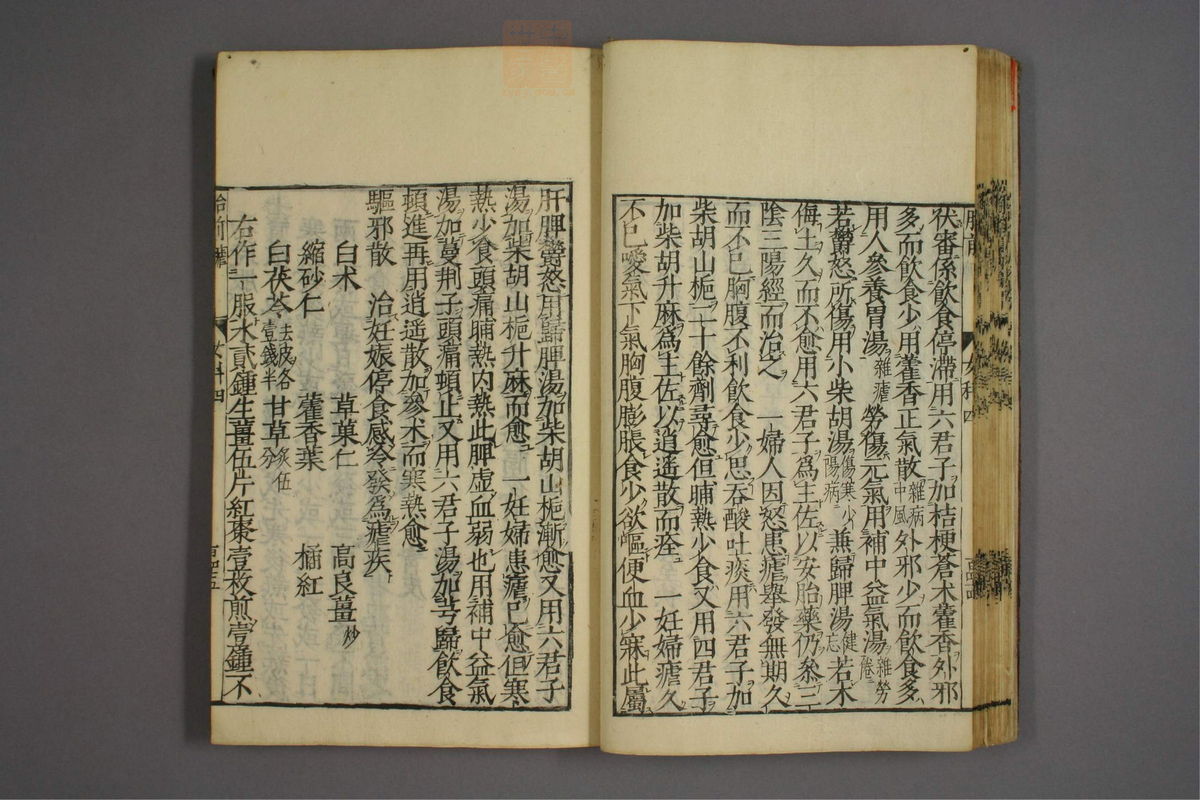 胎前
女科四
伏審係飲食停滯用六君子加桔梗蒼朮藿香外邪
多而飲食少用藿香正氣散雜病中風外邪少而飲食多
用人參養胃湯雜瘧勞傷元氣用補中益氣湯雜勞卷二
若鬱怒所傷用小柴胡湯傷寒少陽病兼歸脾湯健忘若木
侮土久而不愈用六君子爲主佐以安胎藥仍參三
陰三陽經而治之 一婦人因怒患瘧舉發無期久
而不已胸腹不利飲食少思吞酸吐痰用六君子加
柴胡山梔二十餘劑尋愈但晡熱少食又用四君子
加柴胡升麻爲主佐以逍遙散而痊 一妊婦瘧久
不已噯氣下氣胸腹膨脹食少欲嘔便血少寐此屬
肝脾鬱怒用歸脾湯加柴胡山梔漸愈又用六君子
湯加柴胡山梔升麻而愈 一妊婦患瘧已愈但寒
熱少食頭痛晡熱內熱此脾虛血弱也用補中益氣
湯加蔓荊子頭痛頓止又用六君子湯加芎歸飲食
頓進再用逍遙散加參朮而寒熱愈
驅邪散 治妊娠停食感冷發爲瘧疾
白朮 草菓仁 高良薑炒
縮砂仁 藿香葉 橘紅
白茯苓去皮各壹錢半 甘草炙伍分
右作一服水貳鍾生薑伍片紅棗壹枚煎壹鍾不
胎前
女科四